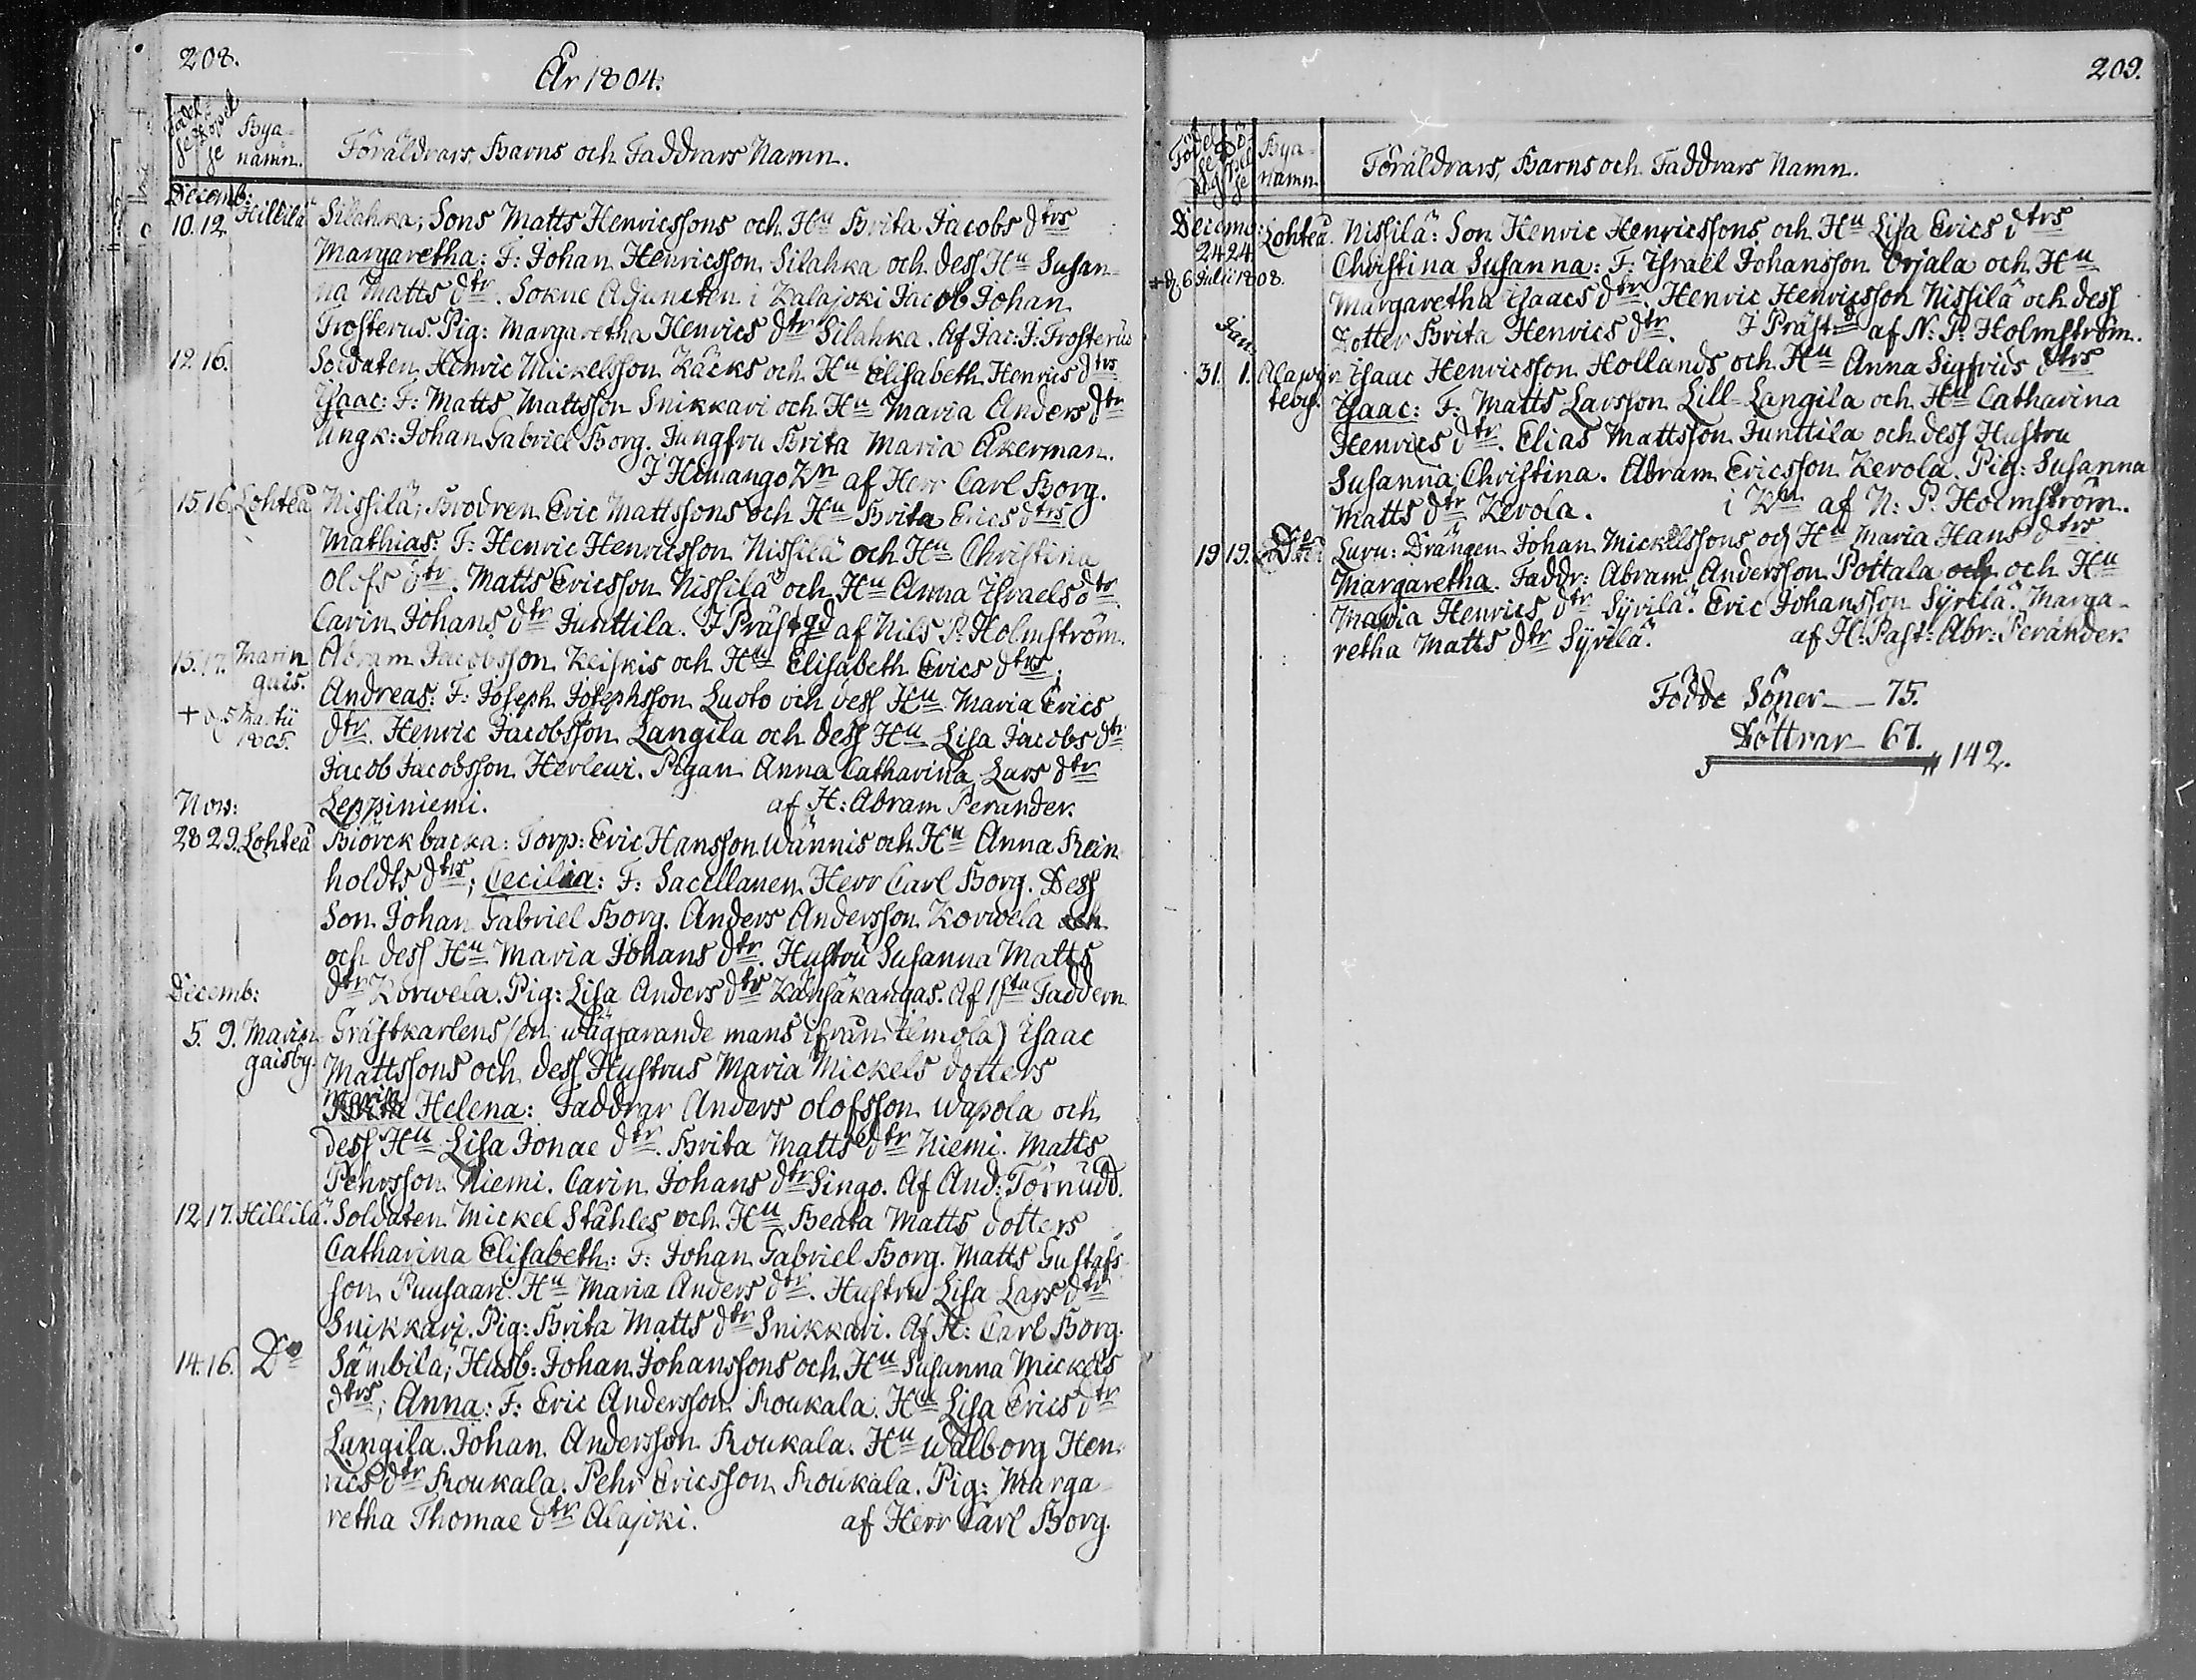 208.
År 1804.
Födel se Döpel se Bya-
namn. Föräldrars, Barns och Faddrars Namn.
Decemb:
10. 12. Hillilä Silahka; Sons Matts Henricssons och Hu Brita Jacobs dtrs
Margaretha: F: Johan Henricsson Silahka och dess Hu Susan-
na Matts dtr. Sokne Adjuncten i Kalajoki Jacob Johan
Frosterus. Pig: Margaretha Henrics dtr Silahka. Af Jac: J. Frosterus
12. 16. Soldaten Henric Mickelsson Käcks och Hu Elisabeth Henrics dtrs
Isaac: F: Matts Mattsson Snikkari och Hu Maria Anders dtr
Ungk: Johan Gabriel Borg. Jungfru Brita Maria Åkerman.
I Himango Kn af Herr Carl Borg.
15. 16. Lohteå Nissilä; Brodren Eric Mattssons och Hu Brita Erics dtrs
Mathias: F: Henric Henricsson Nissilä och Hu Christina
Olofs dtr. Matts Ericsson Nissilä och Hu Anna Israels dtr
Carin Johans dtr Junttila. I Prästgd af Nils P. Holmström.
15. 17. Marin Abram Jacobsson Kleiskis och Hu Elisabeth Erics dtrs;
gais. Andreas: F: Joseph Josephsson Luoto och dess Hu Maria Erics
+ d. 5 Martii
1805. dtr. Henric Jacobsson Langila och dess Hu Lisa Jacobs dtr
Jacob Jacobsson Herleui. Pigan Anna Catharina Lars dtr
Nov: Leppiniemi. af H: Abram Perander.
28 29. Lohteå Biörckbacka: Torp: Eric Hansson Wännis och Hu Anna Rein
holdts dtrs; Cecilia: F: Sacellanen Herr Carl Borg. Dess
Son Johan Gabriel Borg. Anders Andersson Korwela och
och dess Hu Maria Johans dtr. Hustru Susanna Matts
Decemb: dtr Korwela. Pig: Lisa Anders dtr Känsäkangas. Af 1sta Faddern
5. 9. Marin Gräftkarlens (en wägfarande mans ifrån Ilmola) Isaac
gaisby. Mattssons och dess Hustrus Maria Mickels dotters
Maria
Helena: Faddrar Anders Olofsson Wapola och
dess Hu Lisa Jonae dtr. Brita Matts dtr Niemi. Matts
Pehrsson Niemi. Carin Johans dtr Singo. Af And: Törnudd.
12. 17. Hillilä. Soldaten Mickel Ståhles och Hu Beata Matts dotters
Catharina Elisabeth: F: Johan Gabriel Borg. Matts Gustafs
son Puusaari. Hu Maria Anders dtr. Hustru Lisa Lars dtr
Snikkari. Pig: Brita Matts dtr Snikkari. Af H: Carl Borg.
14. 16. Do Sämbilä; Husb: Johan Johanssons och Hu Susanna Mickels
dtrs; Anna: F: Eric Andersson Roukala. Hu Lisa Erics dtr
Langila. Johan Andersson Roukala. Hu Walborg Hen-
rics dtr Roukala. Pehr Ericsson Roukala. Pig: Marga-
retha Thomae dtr Alajoki. af Herr Carl Borg.
209.
Födel se Döpel se Bya-
namn. Föräldrars, Barns och Faddrars Namn.
Decemb:
24 24. Lohteå. Nissilä: Son Henric Henricssons och Hu Lisa Erics dtrs
+ d. 6 Julii 1808. Christina Susanna: F: Israel Johansson Orjala och Hu
Margaretha Isaacs dtr. Henric Henricsson Nissilä och dess
Jan. Dotter Brita Henrics dtr. I Prästgd af N: P. Holmström.
31. 1. Alawijr Isaac Henricsson Hollands och Hu Anna Sigfrids dtrs
Isaac: F: Matts Larsson Lill-Langila och Hu Catharina
Henrics dtr. Elias Mattsson Junttila och dess Hustru
Susanna Christina. Abram Ericsson Kerola. Pig: Susanna
Matts dtr Kerola. i Kn af N: P. Holmström.
19 19. Do Luru: Drängen Johan Mickelssons och Hu Maria Hans dtrs
Margaretha. Faddr: Abram Andersson Pottala och och Hu
Maria Henrics dtr Syrilä. Eric Johansson Syrilä. Marga-
retha Matts dtr Syrilä. af H: Past: Abr: Perander.
Födde Söner — 75.
Döttrar — 67.
142.